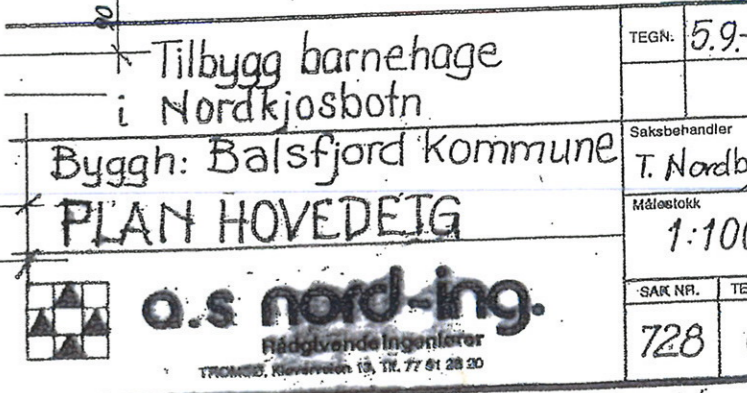 90
Tilbygg barnehage
i Nordkjosbotn
Byggh: Balsfjord kommune
PLAN HOVEDETG
a.s nord-ing.
Rådgivende ingeniører
TROMSØ, 13, Tlf. 77 61 28 20
TEGN: 5.9.-
Saksbehandler
T. Nordb
Målestokk
1:100
SAK NR. TE
728